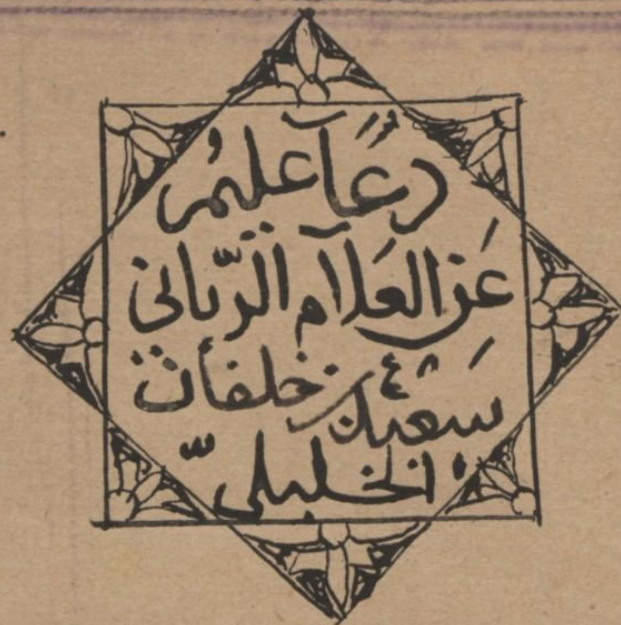 دعآ عليم
عن العلآم الرّباني
سعيد بن خلفان
الخليلي